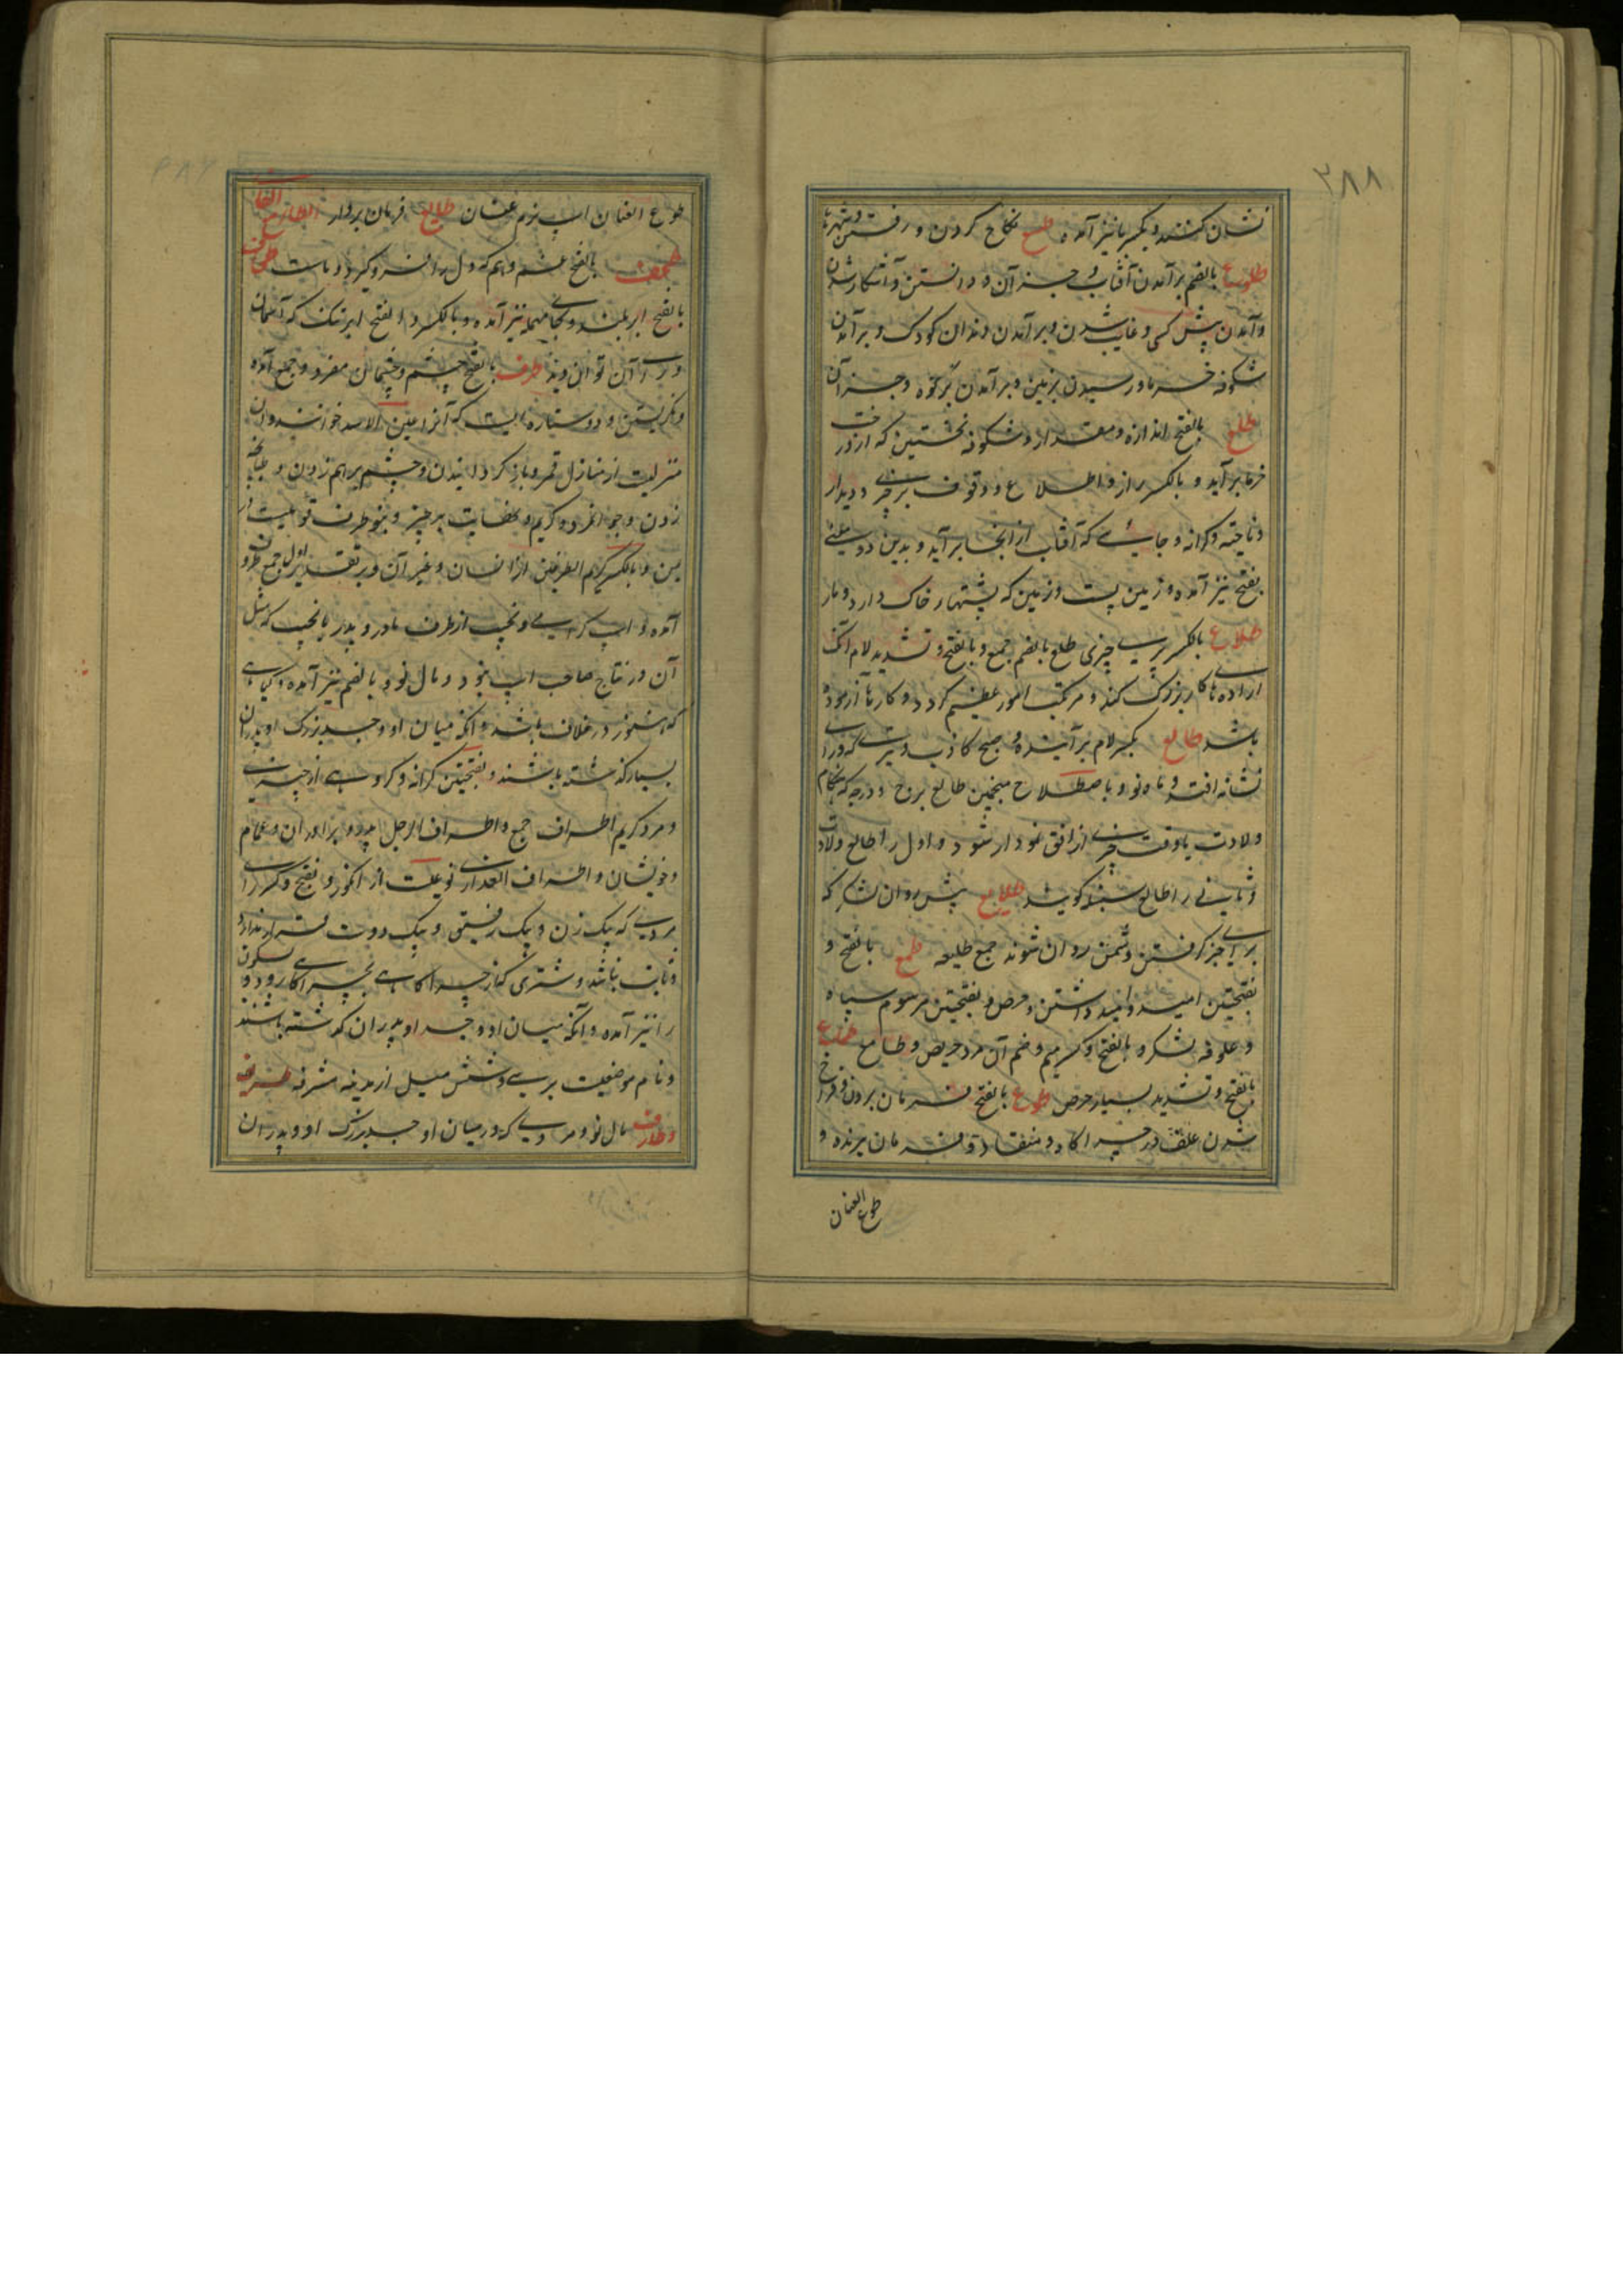 ۳۸۸
نشان کنند و بکسر با نیز آمده طسع نکاح کردن و رفتن در شهرها
طلوع بالضم برآمدن آفتاب و جز آن و دانستن و آشکار شدن
و آمدن پیش کسی و غایب شدن و برآمدن دندان کودک و برآمدن
شکوفه خرما و رسیدن بزمین و برآمدن بر کوه و جز آن
طلع بالفتح اندازه و مقدار و شکوفه نخستین که از درخت
خرما برآید و بالکسر راز و اطلاع و وقوف بر چیزی و دیدار
و ناحیه و کرانه و جائی که آفتاب از آنجا برآید و بدین دو معنی
بفتح نیز آمده و زمین پست و زمین که پشتهای خاک دارد و مار
طلاع بالکسر پری چیزی طلع بالضم جمع و بالفتح و تشدید لام آنکه
اراده های کار بزرگ کند و مرتکب امور عظیم گردد و کارها آزموده
باشد طالع بکسر لام برآینده و صبح کاذب و تیری که ورای
نشانه افتد و ماه نو و باصطلاح منجمین طالع برج و درجه که هنگام
ولادت یا وقت چیزی از افق نمودار شود و اول را طالع ولادت
و ثانی را طالع گویند طلایع پیش روان لشکر که
برای خبر گرفتن دشمن روان شوند جمع طلیعه طمع بالفتح و
بفتحتین امید و امید داشتن و حرص و بفتحتین مرسوم سپاه
و علوفه لشکر و بالفتح و کسر میم و ضم آن مرد حریص و طامع طماع
بالفتح و تشدید بسیار حرص طوع بالفتح فرمان بردن و فراخ
شدن علف در چراگاه و منقاد و فرمان برنده و
طوع العنان
طوع العنان اسپ نرم عنان طایع فرمان بردار الطاء مع الفاء
بالفتح غشم و هم که دل را فرو گیرد
بالفتح ابر بلند و بحاء مهمله نیز آمده و بالکسر و الفتح ابر تنک که آسمان
و رای آن توان دید طرف بالفتح چشم و چشمان مفرد و جمع آمده
و نگریستن و دو ستاره ایست که آنرا عین الاسد خوانند و آن
منزلیست از منازل قمر و باز گردانیدن و چشم بر هم زدن و طپانچه
زدن و جوانمرد و کریم و نهایت هر چیز و بنو طرف قومیست از
یمن و بالکسر کریم الطرفین از انسان و غیر آن و بر تقدیر اول جمع طروف
آمده و اسپ گرامی و نجیب از طرف مادر و پدر یا نجیب که مثل
آن در نتاج صاحب اسپ نبود و مال نو و بالضم نیز آمده و گیاهی
که هنوز در غلاف باشد و آنکه میان او و جد بزرگ او پدران
بسیار گذشته باشند و بفتحتین کرانه و گروهی از چیزی
و مرد کریم اطراف جمع و اطراف الرجل پدر و برادران و اعمام
و خویشان و اطراف العذاری نوعیست از انگور و بفتح و کسر رای
مردی که بیک زن و بیک رفیق و بیک دوست قرار ندارد
و ثابت نباشد و شتری کنار چراگاهی بچراگاه رود و سکون
را نیز آمده و آنکه میان او و جد او پدران گذشته باشند
و نام موضعیست بر سی و شش میل از مدینه مشرفه طریف
و طارف مال نو و مردی که در میان او جد بزرگ او و پدران